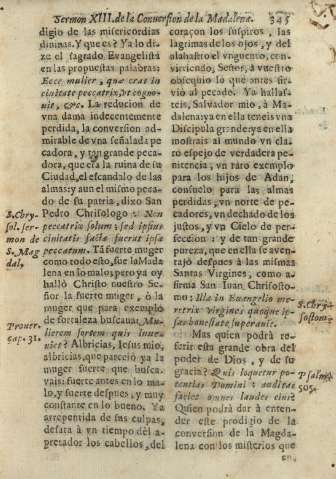 Sermon XIII. de la Conuersion de la Madalena. 345
digio de las misericordias
diuinas. Y que es? Ya lo di-
ze el sagrado Euangelista
en las propuestas palabras:
Ecce mulier, quæ erat in
ciuitate peccatrix, vt cogno-
uit, &c. La reducion de
vna dama indecentemente
perdida, la conuersion ad-
mirable de vna señalada pe
cadora, y tan grande peca-
dora, que era la ruina de su
Ciudad, el escandalo de las
almas: y aun el mismo peca-
do de su patria, dixo San
Pedro Chrisologo: Non
peccatrix solum; sed ipsius
ciuitatis facta fuerat ipsa
peccatum. Tã fuerte muger
como todo esto, fue la Mada
lena en lo malo; pero ya oy
halló Christo nuestro Se-
ñor la fuerte muger, ò la
muger que para exemplo
de fortaleza buscaua: Mu-
lierem fortem quis inue-
niet? Albricias, Iesus mio,
albricias, que pareciò ya la
muger fuerte que busca-
uais: fuerte antes en lo ma-
lo, y fuerte despues, y muy
constante en lo bueno. Ya
arrepentida de sus culpas,
desata à vn tiempo del a-
pretador los cabellos, del
S. Chry-
sol. ser-
mon de
S. Mag
dal,
Prouer.
cap. 31.
coraçon los suspiros, las
lagrimas de los ojos, y del
alabastro el vnguento, con-
virtiendo, Señor, à vuestro
obsequio lo que antes sir-
viò al pecado. Ya hallas-
teis, Salvador mio, à Ma-
dalena: ya en ella teneis vna
Discipula grande: ya en ella
mostrais al mundo vn cla-
ro espejo de verdadera pe-
nitencia, vn raro exemplo
para los hijos de Adan,
consuelo para las almas
perdidas, vn norte de pe-
cadores, vn dechado de los
justos, y vn Cielo de per-
feccion: y de tan grande
pureza, que en ella se aven-
tajò despues à las mismas
Santas Virgines, como a-
firma San Iuan Chrisosto-
mo: Illa in Euangelio me-
retrix virgines quoque ip-
sas honestate superauit.
Mas quien podrà re-
ferir esta grande obra del
poder de Dios, y de su
gracia? Quis loquetur po-
tentias Domini: auditas
faciet omnes laudes eius?
Quien podrà dar à enten-
der este prodigio de la
conversion de la Magda-
lena con los misterios que
S. Chry-
sostom.
Psalm.
105.
en,